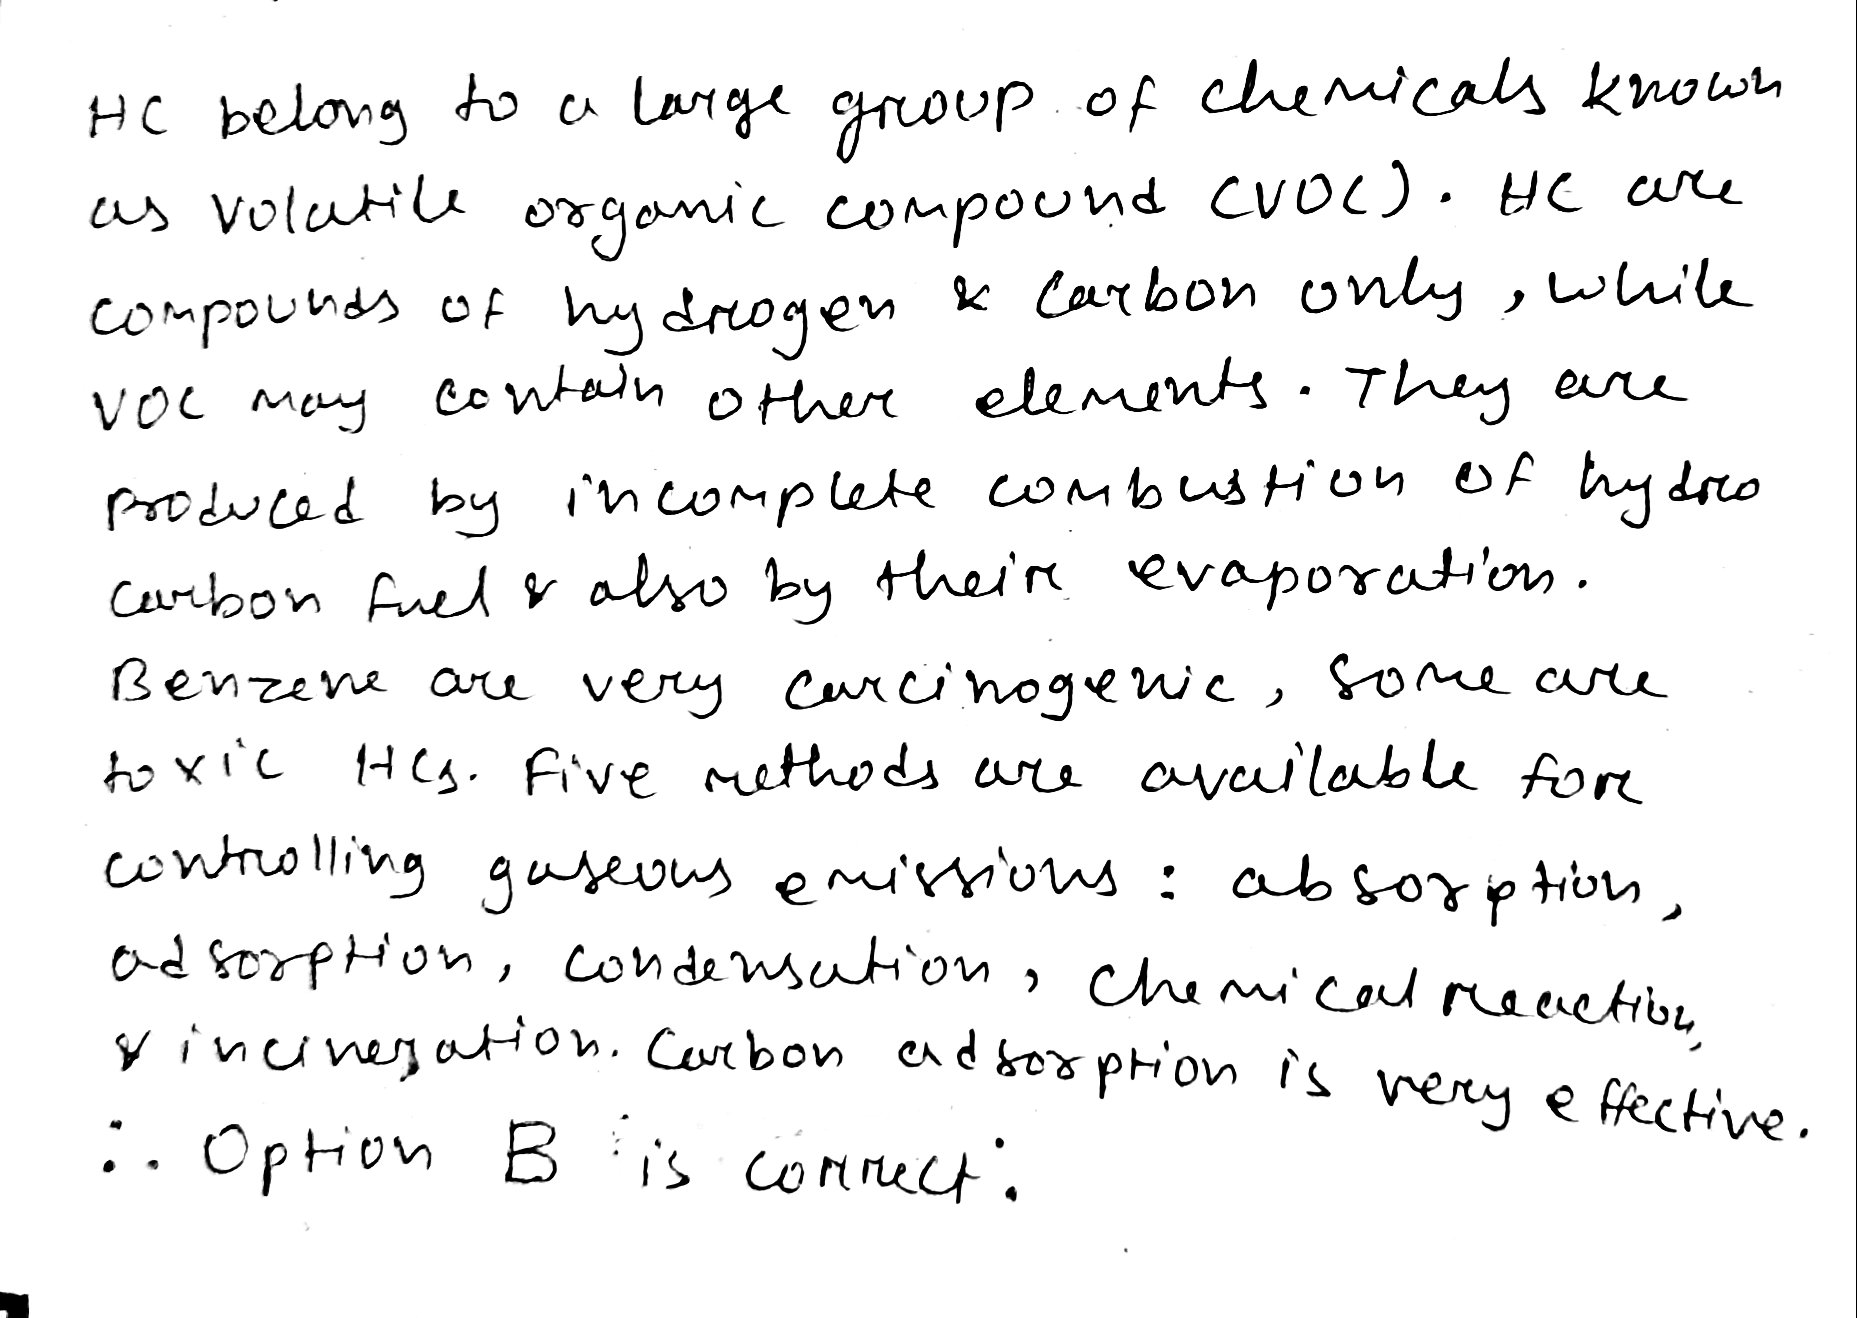 HC belong to a large group of chemicals known
as volatile organic compound (VOC). HC are
compounds of hydrogen & carbon only, while
VOC may contain other elements. They are
produced by incomplete combustion of hydro
carbon fuel & also by their evaporation.
Benzene are very carcinogenic, some are
toxic HCs. Five methods are available for
controlling gaseous emissions : absorption,
adsorption, condensation, chemical reaction,
& incineration. Carbon adsorption is very effective.
∴ Option B is correct.